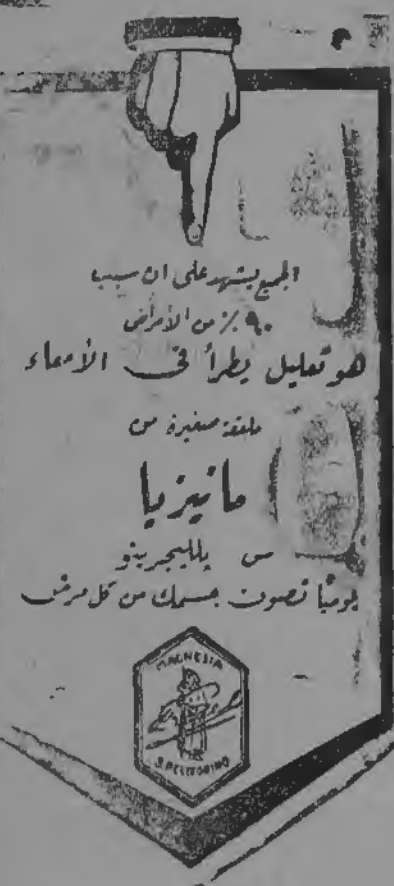 الجميع يشهد على ان سبب
٩٠ ٪ من الأمراض
هو تعليل يطرأ في الأمعاء
ملعقة صغيرة من
مانيزيا
س بلليجرينو
يوميًا تصون جسمك من كل مرض
MAGNESIA
S. PELLEGRINO